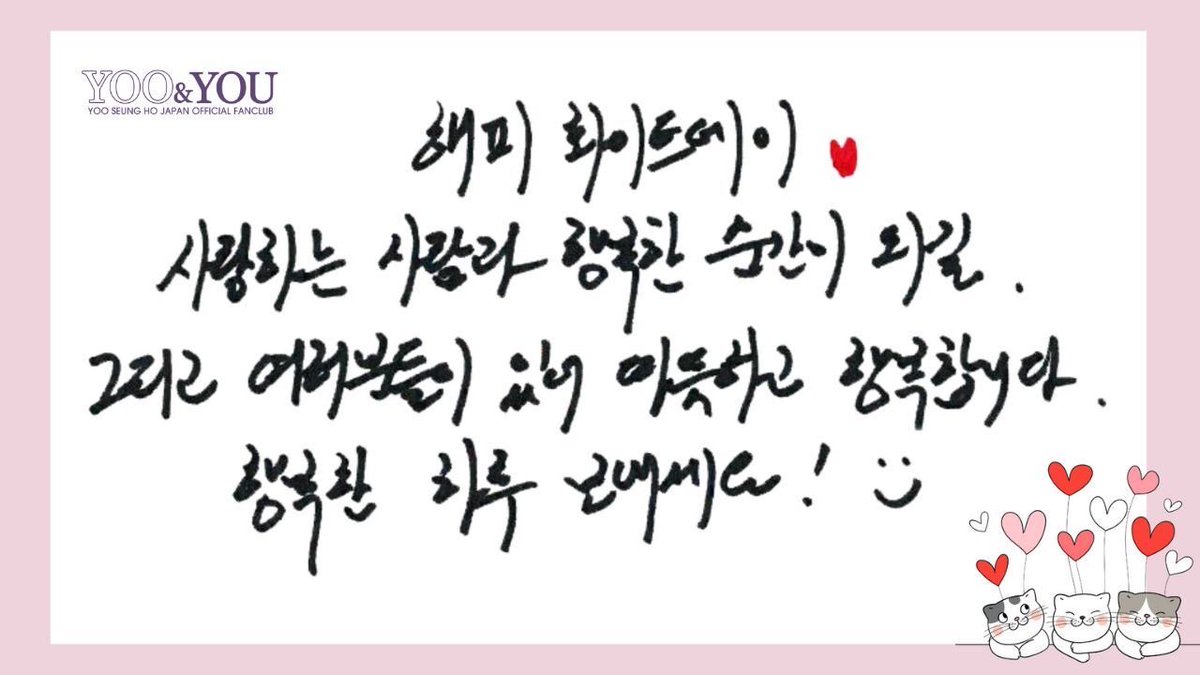 YOO&YOU
YOO SEUNG HO JAPAN OFFICIAL FANCLUB
해피 화이트데이
사랑하는 사람과 행복한 순간이 되길.
그리고 여러분들이 있어 따뜻하고 행복합니다.
행복한 하루 보내세요! :)